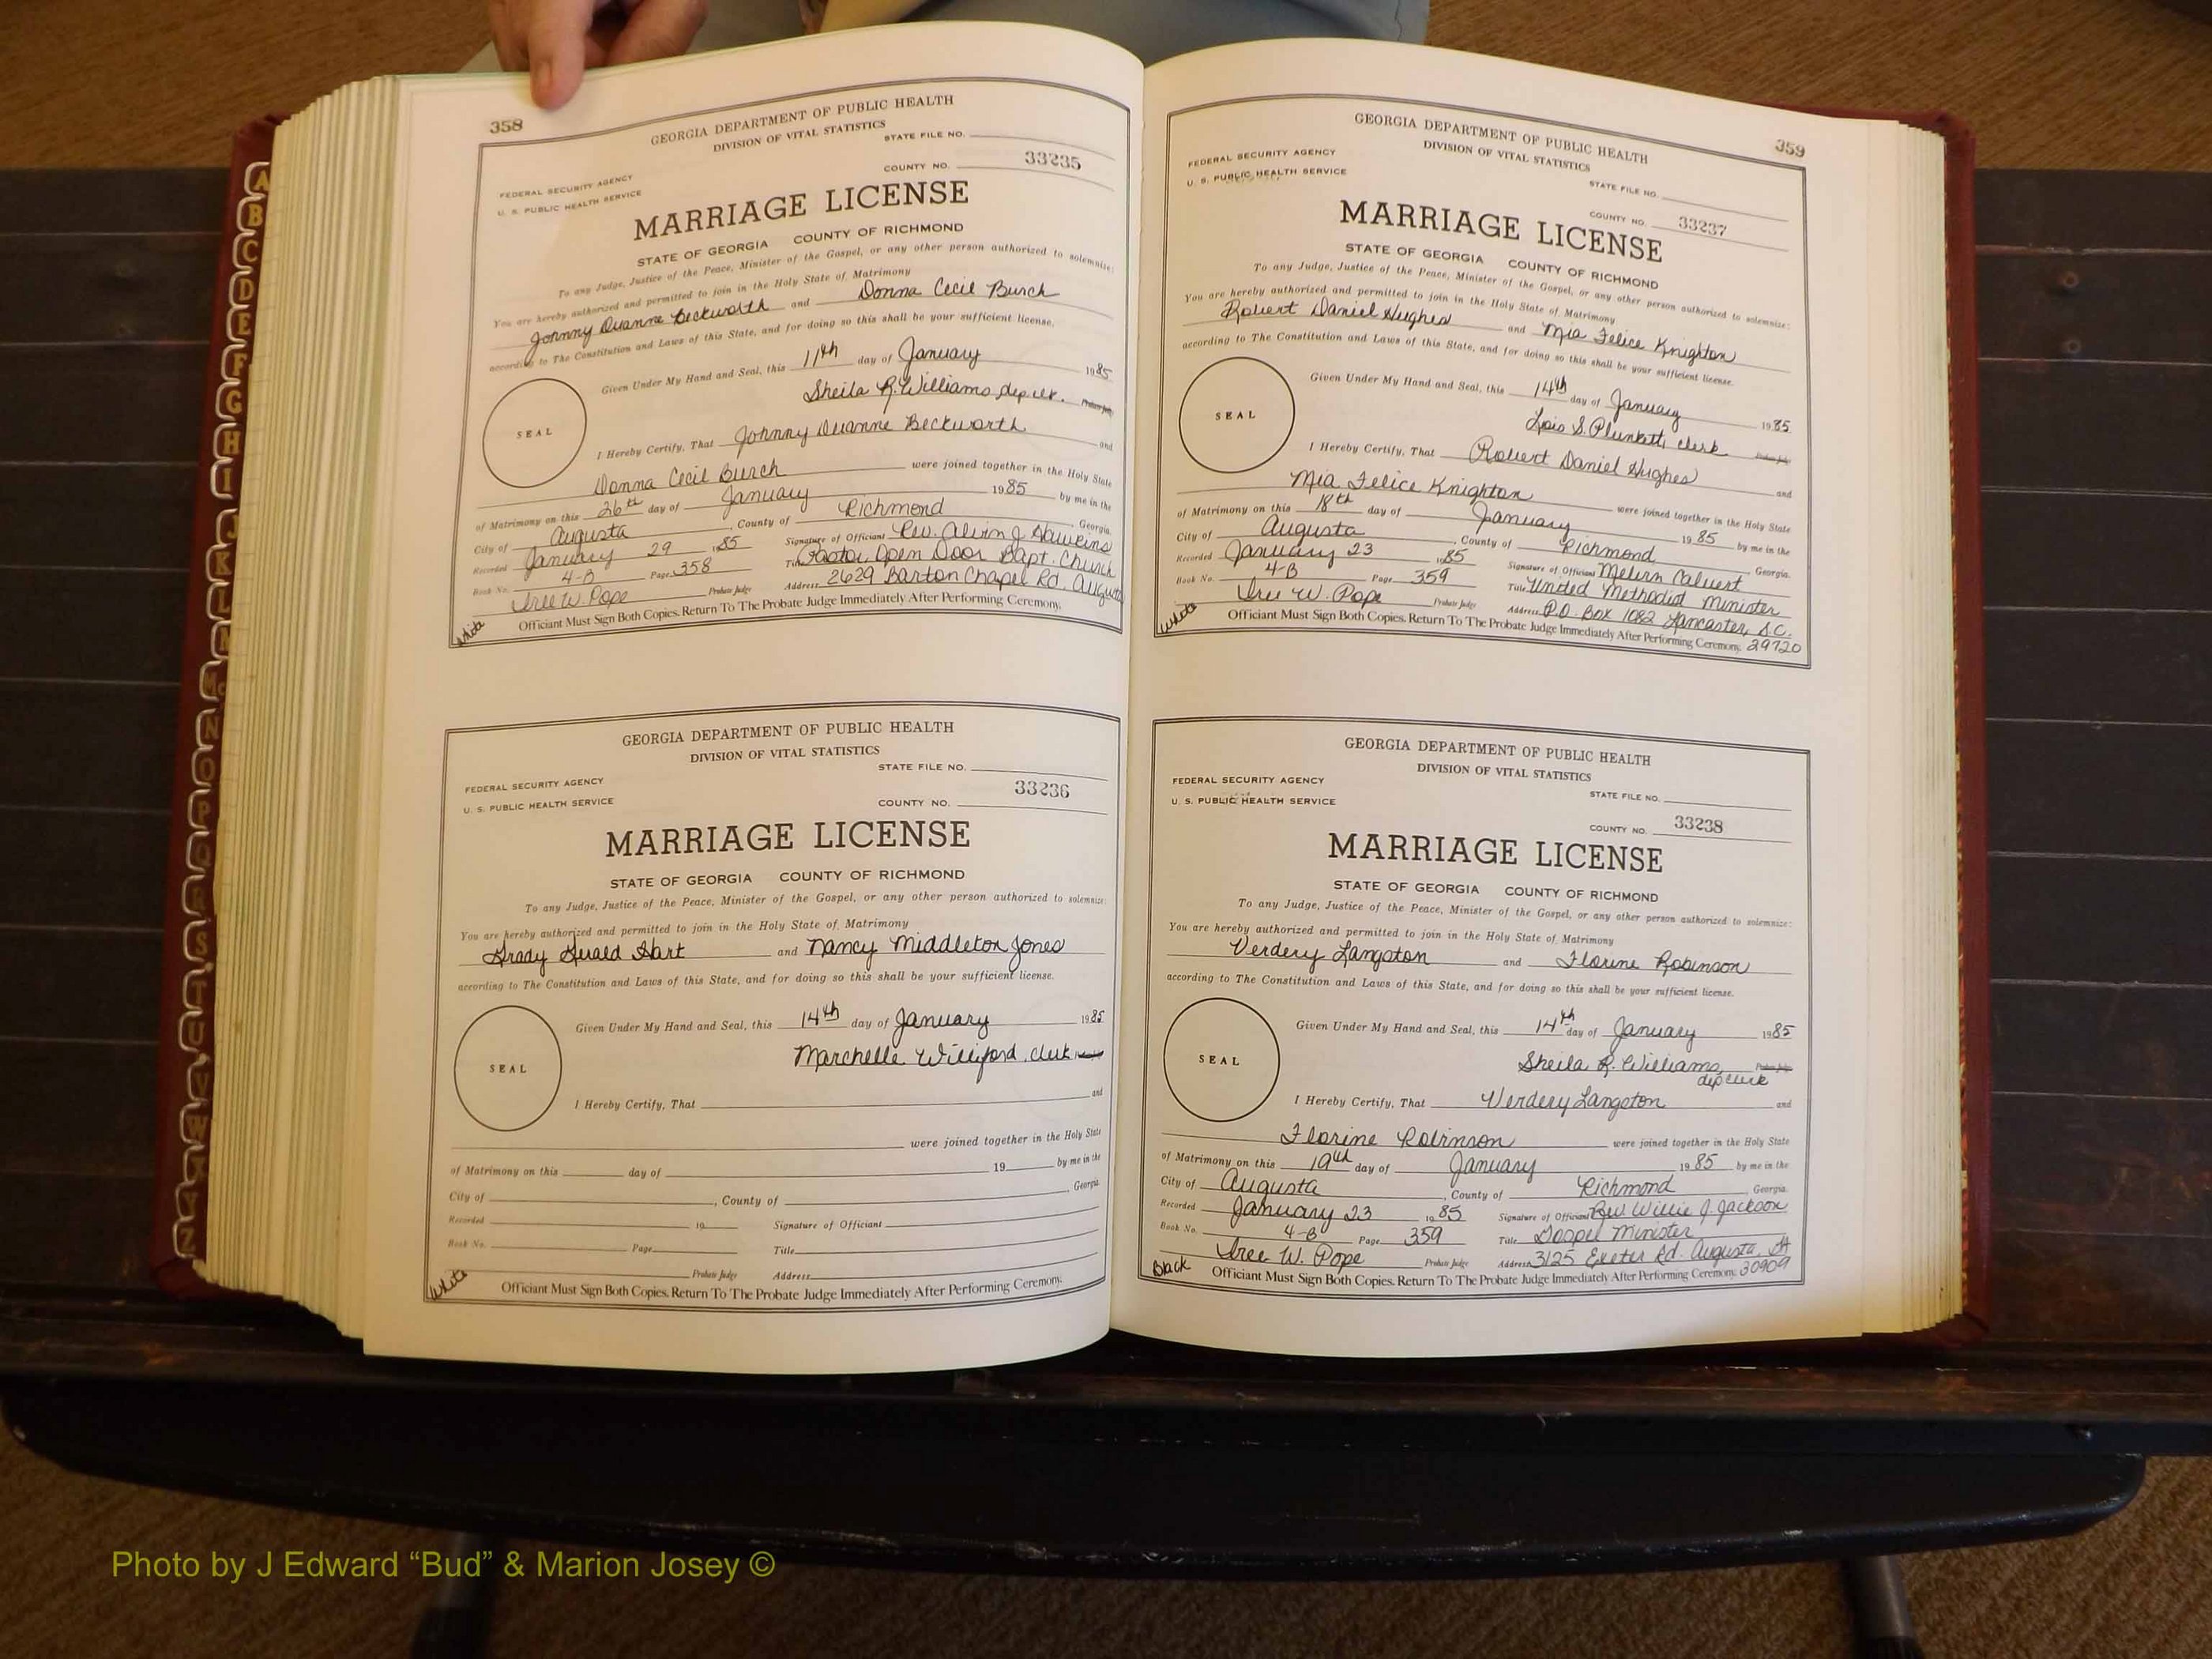 358
GEORGIA DEPARTMENT OF PUBLIC HEALTH
DIVISION OF VITAL STATISTICS
STATE FILE NO.
FEDERAL SECURITY AGENCY
U. S. PUBLIC HEALTH SERVICE
COUNTY NO. 33235
MARRIAGE LICENSE
STATE OF GEORGIA COUNTY OF RICHMOND
To any Judge, Justice of the Peace, Minister of the Gospel, or any other person authorized to solemnize:
You are hereby authorized and permitted to join in the Holy State of Matrimony
Johnny Duanne Beckworth and Donna Cecil Burch
according to The Constitution and Laws of this State, and for doing so this shall be your sufficient license.
Given Under My Hand and Seal, this 11th day of January 1985
Sheila R. Williams, dep. clk. Probate Judge
SEAL
I Hereby Certify, That Johnny Duanne Beckworth and
Donna Cecil Burch were joined together in the Holy State
of Matrimony on this 26th day of January 1985 by me in the
City of Augusta, County of Richmond, Georgia.
Recorded January 29 1985 Signature of Official Rev. Alvin J. Hawkins
Book No. 4-B Page 358 Title Pastor, Open Door Bapt. Church
Iree W. Pope Probate Judge Address 2629 Barton Chapel Rd. Augusta
White Officiant Must Sign Both Copies. Return To The Probate Judge Immediately After Performing Ceremony.
GEORGIA DEPARTMENT OF PUBLIC HEALTH
DIVISION OF VITAL STATISTICS
STATE FILE NO.
FEDERAL SECURITY AGENCY
U. S. PUBLIC HEALTH SERVICE
COUNTY NO. 33236
MARRIAGE LICENSE
STATE OF GEORGIA COUNTY OF RICHMOND
To any Judge, Justice of the Peace, Minister of the Gospel, or any other person authorized to solemnize:
You are hereby authorized and permitted to join in the Holy State of Matrimony
Grady Gerald Hart and Nancy Middleton Jones
according to The Constitution and Laws of this State, and for doing so this shall be your sufficient license.
Given Under My Hand and Seal, this 14th day of January 1985
Marchelle Williford, clerk
SEAL
I Hereby Certify, That and
were joined together in the Holy State
of Matrimony on this day of 19 by me in the
City of , County of Georgia.
Recorded 19 Signature of Officiant
Book No. Page Title
Probate Judge Address
White Officiant Must Sign Both Copies. Return To The Probate Judge Immediately After Performing Ceremony.
359
GEORGIA DEPARTMENT OF PUBLIC HEALTH
DIVISION OF VITAL STATISTICS
FEDERAL SECURITY AGENCY
U. S. PUBLIC HEALTH SERVICE
STATE FILE NO.
COUNTY NO. 33237
MARRIAGE LICENSE
STATE OF GEORGIA COUNTY OF RICHMOND
To any Judge, Justice of the Peace, Minister of the Gospel, or any other person authorized to solemnize:
You are hereby authorized and permitted to join in the Holy State of Matrimony
Robert Daniel Hughes and Mia Felice Knighton
according to The Constitution and Laws of this State, and for doing so this shall be your sufficient license.
Given Under My Hand and Seal, this 14th day of January 1985
Lois S. Plunkett, clerk Probate Judge
SEAL
I Hereby Certify, That Robert Daniel Hughes and
Mia Felice Knighton were joined together in the Holy State
of Matrimony on this 18th day of January 1985 by me in the
City of Augusta, County of Richmond, Georgia.
Recorded January 23 1985 Signature of Official Melvin Calvert
Book No. 4-B Page 359 Title United Methodist Minister
Iree W. Pope Probate Judge Address P.O. Box 1082 Lancaster, S.C.
White Officiant Must Sign Both Copies. Return To The Probate Judge Immediately After Performing Ceremony. 29720
GEORGIA DEPARTMENT OF PUBLIC HEALTH
DIVISION OF VITAL STATISTICS
FEDERAL SECURITY AGENCY
U. S. PUBLIC HEALTH SERVICE
STATE FILE NO.
COUNTY NO. 33238
MARRIAGE LICENSE
STATE OF GEORGIA COUNTY OF RICHMOND
To any Judge, Justice of the Peace, Minister of the Gospel, or any other person authorized to solemnize:
You are hereby authorized and permitted to join in the Holy State of Matrimony
Verdery Langston and Florine Robinson
according to The Constitution and Laws of this State, and for doing so this shall be your sufficient license.
Given Under My Hand and Seal, this 14th day of January 1985
Sheila R. Williams, Probate Judge
dep clerk
SEAL
I Hereby Certify, That Verdery Langston and
Florine Robinson were joined together in the Holy State
of Matrimony on this 19th day of January 1985 by me in the
City of Augusta, County of Richmond, Georgia.
Recorded January 23 1985 Signature of Official Rev. Willie J. Jackson
Book No. 4-B Page 359 Title Gospel Minister
Iree W. Pope Probate Judge Address 3125 Exeter Rd. Augusta, GA
Black Officiant Must Sign Both Copies. Return To The Probate Judge Immediately After Performing Ceremony. 30909
A
B
C
D
E
F
G
H
I
J
K
L
M
Mc
N
O
P
Q
R
S
T
U
V
W
X
Y
Z
Photo by J Edward “Bud” & Marion Josey ©